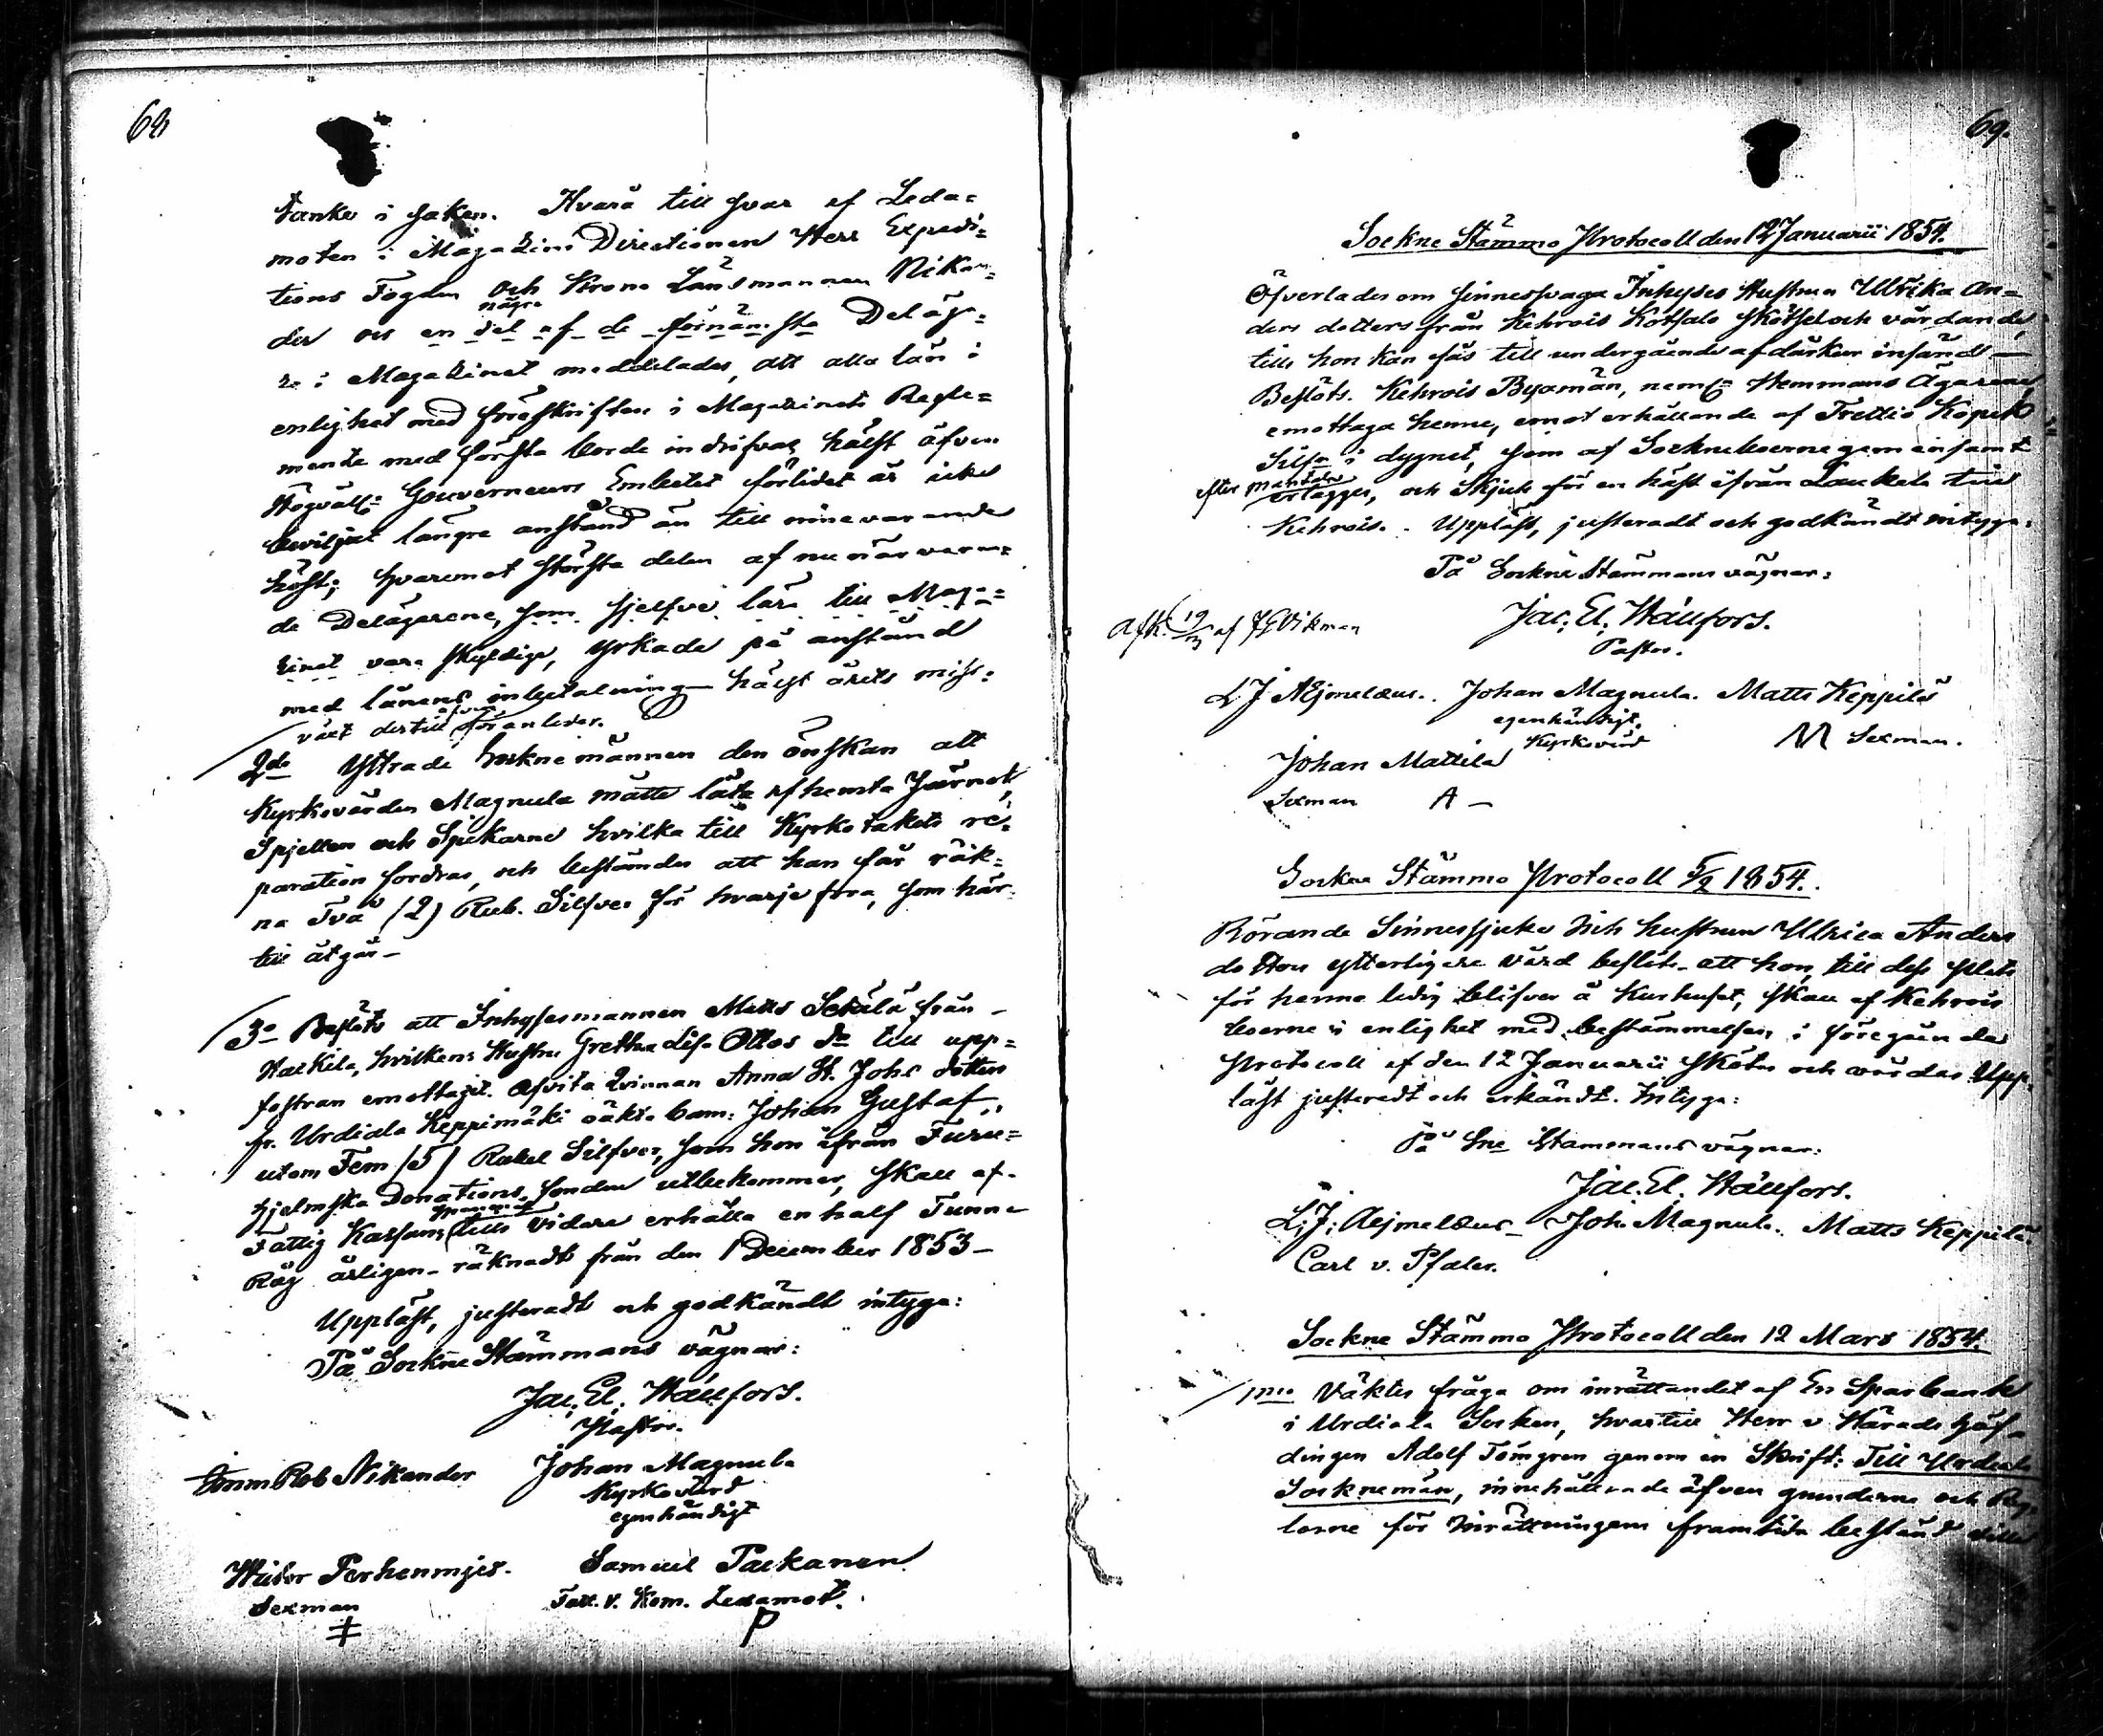 68
tanke i saken. Hvarå till svar af Leda=
moten i Magazins Directionen Herr Expedi=
tions Fogden och Krono Länsmannen Nikan=
der och en del af de förnämsta Deläga=
några
re i Magazinet meddelades, att alla lån i
enlighet med föreskriften i Magazinets Regle=
mente med första borde indrifvas, hälst äfven
Högväll: Gouverneurs Embetet förlidet år icke
beviljat längre anstånd än till ninevarande
höst; hvaremot största delen af nu närvaran=
de Delägarene, som sjelfve lära till Maga=
zinet vara skyldige, yrkade på anstånd
med lånens inbetalning hälst årets miss=
växt dertill föranleder.
2do Yttrade Sockne männen den önskan att
Kyrkovärden Magnula måtte låta afhemta Järnet,
Spjellen och Spikarne hvilka till Kyrkotakets re=
paration fordras, och bestämdes att han får räk=
na Två (2) Rub. Silfver för hvarje fora, som här
till åtgår _
3o Beslöts att Inhysesmannen Matts Setälä från
Hackila, hvilkens Hustru Gretha Lisa Ottos dr till upp=
fostran emottagit Afvita Qvinnan Anna H. Johs dotters
fr. Urdiala Keppimäki oäkta barn: Johan Gustaf,,
utom Fem (5) Rubel Silfver, som hon ifrån Furu=
hjelmska Donations fonden utbekommer, skall af
Fattig Kassans tills vidare erhålla en half Tunna
Råg årligen _ räknadt från den 1 December 1853 _
Uppläst, justeradt och godkändt intyga:
På Sockne Stämmans vägnar:
Jac. El. Hällfors.
Pastor.
Rob Nikander Johan Magnula
Kyrkovärd
egenhändigt
Perhenmjes. Samuel Packanen
Sexman Fatt. v. Kom. Ledamot.
P
69.
Sockne Stämmo Protocoll den 12 Januarii 1854.
Öfverlades om sinnessvaga Inhyses Hustrun Ulrika An=
ders dotters från Kehrois Kötsalo skötsel och vårdande,
tills hon kan fås till undergående af dårkur insänd _
Beslöts. Kehrois Byamän, neml: Hemmans Ägarene,
emottaga henne, emot erhållande af Trettio Kopek
Silfr i dygnet, som af Sockneboerne gemensamt
efter mantalet erlägges, och Skjuts för en häst ifrån Laukela till
Kehrois. Uppläst, justeradt och godkändt intyga:
På Sockne Stämmans vägnar:
Jac. El. Hällfors.
Pastor.
L J Aejmelæus. Johan Magnula. Matts Keppilä
egenhändigt.
Kyrkovärd M Sexman.
Johan Mattila
Sexman A _
Sockne Stämmo Protocoll 5/2 1854.
Rörande Sinnessjuka Inh hustrun Ulrica Anders
dotters ytterligare vård beslöts att hon, till dess plats
för henne ledig blifver å Kurhuset, skall af Kehrois
boerne i enlighet med bestämmelsen i föregående
Protocoll af den 12 Januarii skötas och vårdas Upp=
läst justeradt och erkändt. Intyga:
På Sne Stämmans vägnar:
Jac. El. Hällfors.
L. J. Aejmelæus _ Joh. Magnula. Matts Keppilä
Carl v. Pfaler.
Sockne Stämmo Protocoll den 12 Mars 1854.
1mo Väktes fråga om inrättandet af En Sparbank
i Urdiala Socken, hvartill Herr v Härads Höf=
dingen Adolf Törngren genom en Skrift: Till Urdiala
Sockneman, innehållande äfven grunderna och Reg=
lorne för Inrättningens framtida bestånd